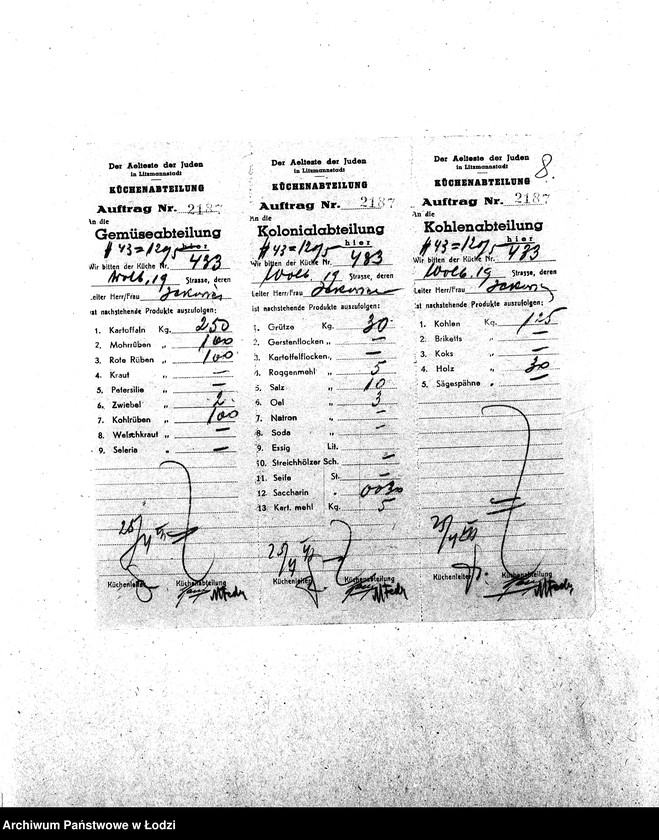 Der Aelteste der Juden
in Litzmannstadt
KÜCHENABTEILUNG
Auftrag Nr. 2187
An die
Gemüseabteilung
Wir bitten der Küche Nr. 483
Wolb. 19 Strasse, deren
Leiter Herr/Frau
ist nachstehende Produkte auszufolgen:
1. Kartoffeln Kg. 250
2. Mohrrüben „ 100
3. Rote Rüben „ 100
4. Kraut „ —
5. Petersilie „ —
6. Zwiebel „ 2
7. Kohlrüben „ 100
8. Welschkraut „ —
9. Seleria „ —
Küchenleiter Küchenabteilung
Der Aelteste der Juden
in Litzmannstadt
KÜCHENABTEILUNG
Auftrag Nr. 2187
An die
Kolonialabteilung
hier
Wir bitten der Küche Nr. 483
Wolb. 19 Strasse, deren
Leiter Herr/Frau
ist nachstehende Produkte auszufolgen:
1. Grütze Kg. 30
2. Gerstenflocken „ —
3. Kartoffelflocken „ —
4. Roggenmehl „ 5
5. Salz „ 10
6. Oel „ 3
7. Natron „ —
8. Soda „ —
9. Essig Lit.
10. Streichhölzer Sch. —
11. Seife St. —
12 Saccharin „
13 Kart. mehl Kg. 5
Küchenleiter Küchenabteilung
8.
Der Aelteste der Juden
in Litzmannstadt
KÜCHENABTEILUNG
Auftrag Nr. 2187
An die
Kohlenabteilung
hier
Wir bitten der Küche Nr. 483
Wolb. 19 Strasse, deren
Leiter Herr/Frau
ist nachstehende Produkte auszufolgen:
1. Kohlen Kg. 125
2. Briketts „ —
3. Koks „ —
4. Holz „ 30
5. Sägespähne „ —
Küchenleiter Küchenabteilung
Archiwum Państwowe w Łodzi